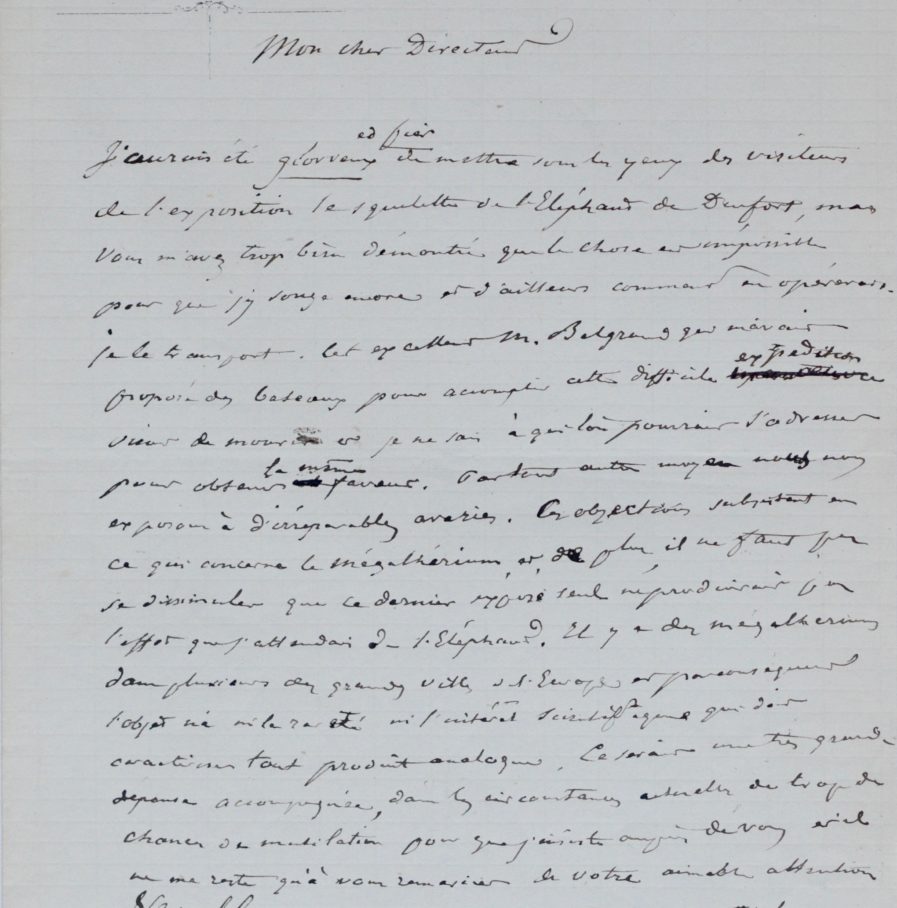 Mon cher Directeur
et fier
J'aurais été glorieux de mettre sous les yeux des visiteurs
de l'exposition le squelette de l'Eléphant de Durfort, mais
vous m'avez trop bien démontré que la chose est impossible
pour que j'y songe encore et d'ailleurs comment en opérerais-
je le transport. Cet excellent M. Belgrand qui m'avait
expédition
proposé des bateaux pour accomplir cette difficile
vient de mourir et je ne sais à qui l'on pourrait s'adresser
la même
pour obtenir faveur. Tout autre moyen nous
exposant à d'irréparables avaries. Ces objections subsistent en
ce qui concerne le mégathérium et de plus, il ne faut pas
se dissimuler que ce dernier exposé seul ne produirait pas
l'effet que j'attendais de l'Eléphant. Il y a des mégatheriums
dans plusieurs des grandes villes de l'Europe et par conséquent
l'objet n'a ni la rareté ni l'intérêt scientifique qui doit
caractériser tout produit analogue. Ce serait une très grande
dépense accompagnée, dans les circonstances actuelles de trop de
chances de mutilation pour que j'insiste auprès de vous et il
ne me reste qu'à vous remercier de votre aimable attention